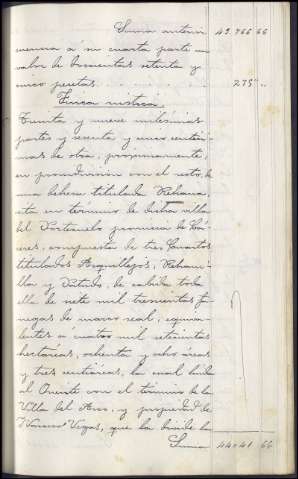 Suma anterior 43.766 66
menena á su cuarta parte un
valor de doscientas setenta y
cinco pesetas 275 "
Finca rústica
Treinta y nueve milésimas
partes y sesenta y cinco centési-
mas de otra, proximamente,
en proindivision con el resto, de
una dehesa titulada Rehana,
sita en término de dicha villa
del Portezuelo provincia de Các-
eres, compuesta de tres Cuartos
titulados Rehani-
lla y de cabida toda
ella de siete mil trescientas fa-
negas de marco real, equiva-
lentes á cuatro mil setecientas
hectáreas, ochenta y ocho áreas
y tres centiáreas, la cual linda
al Oriente con el término de la
Villa del Arco, y propiedad de
Vegas, que la divide la
Suma 44041 66